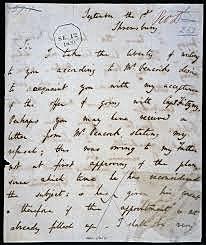 September the 1st
Shrewsbury
Sir
I take the liberty of writing
to you according to Mr Peacocks desire
to acquaint you with my acceptance
of the offer of going with Capt Fitzroy.
Perhaps you may have received a
letter from Mr Peacock, stating my
refusal; this was owing to my Father
not at first approving of the plan,
since which time he has reconsidered
the subject: & has given his consent
& therefore if the appointment is not
already filled up, I shall be very